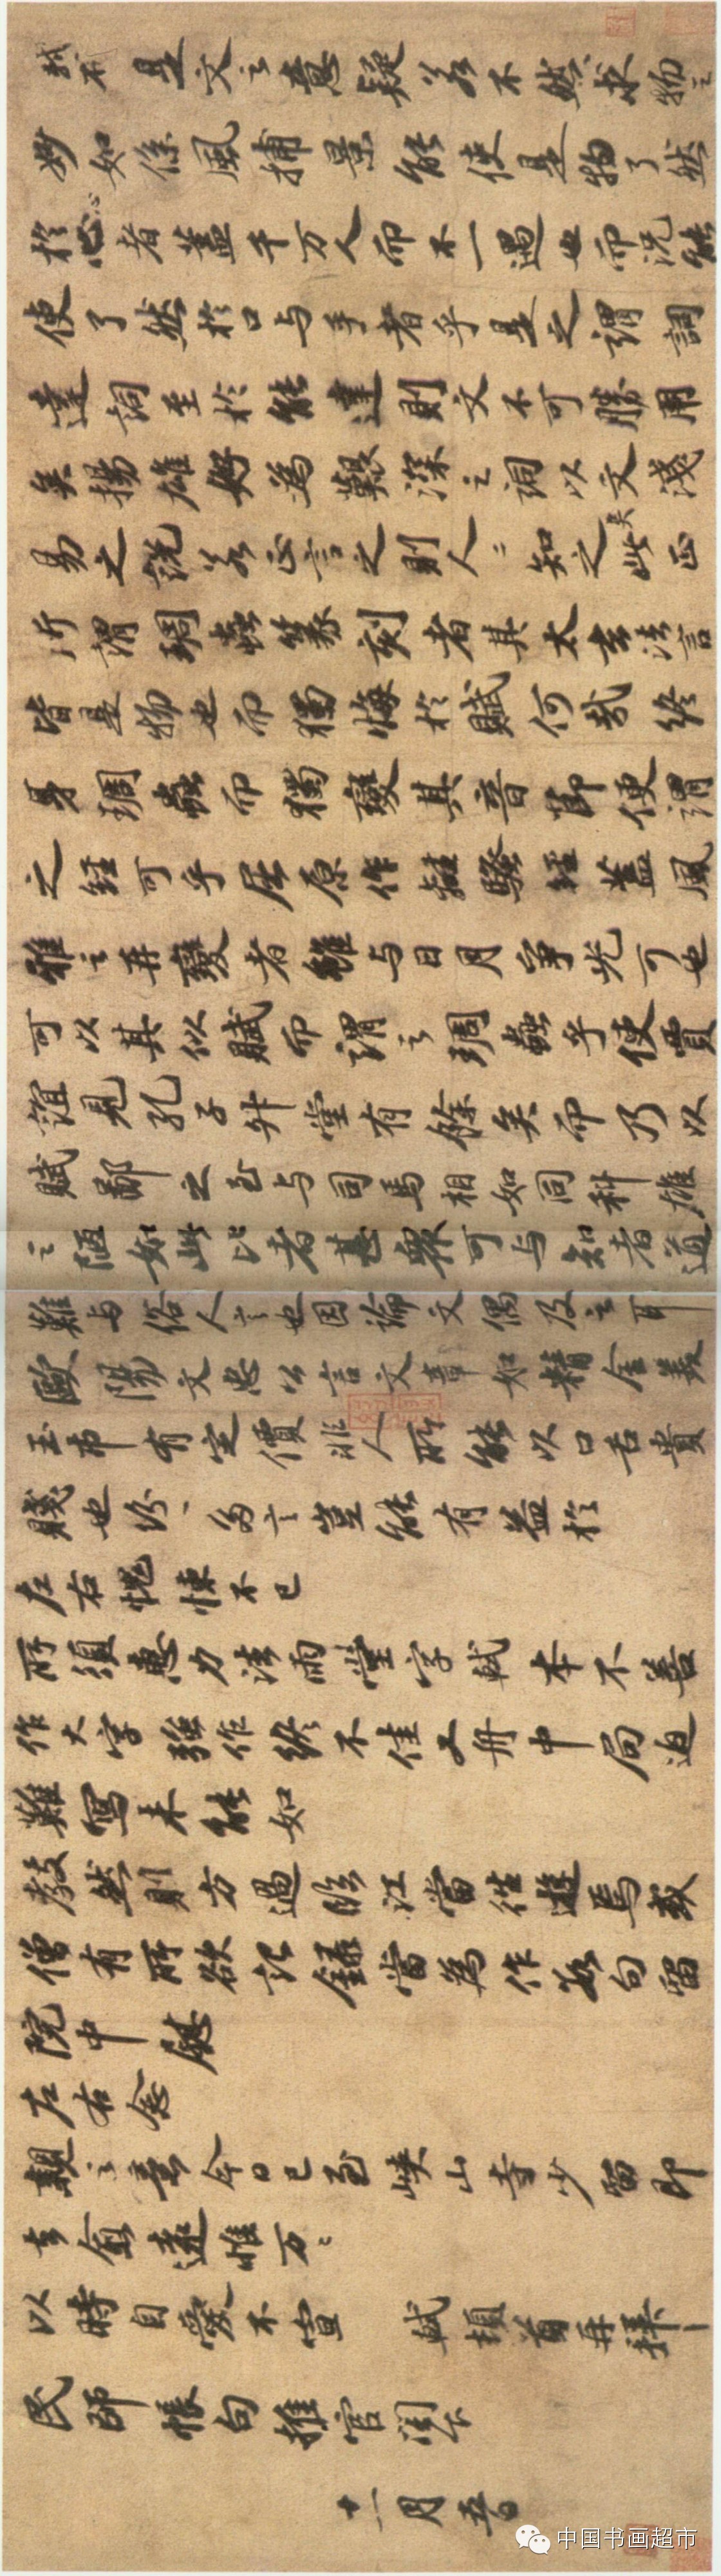 是文之意疑若不然求物之
妙如係風捕景能使是物了然
於心者蓋千万人而不一遇也而況能
使了然於口与手者乎是之謂詞
達詞至於能達則文不可勝用
矣揚雄好為艱深之詞以文淺
易之說若正言之則人〃知之矣此正
所謂琱蟲篆刻者其太玄法言
皆是物也而獨悔於賦何哉終
身琱蟲而獨變其音節便謂
之經可乎屈原作離騷經蓋風
雅之再變者雖与日月爭光可也
可以其似賦而謂之琱蟲乎使賈
誼見孔子升堂有餘矣而乃以
賦鄙之至与司馬相如同科雄
之陋如此比者甚衆可与知者道
難与俗人言也因論文偶及之耳
歐陽文忠公言文章如精金美
玉市有定價非人所能以口舌貴
賤也紛〃多言豈能有益於
左右愧悚不已
所須惠力法雨堂字軾本不善
作大字強作終不佳又舟中局迫
難寫未能如
教然則方過臨江當往遊焉或
僧有所欲記錄當為作數句留
院中慰
左右念
親之意今日已至峽山寺少留即
去愈遠惟万〃
以時自愛不宣 軾頓首再拜
民師帳句推官閤下
十一月五日
中国书画超市